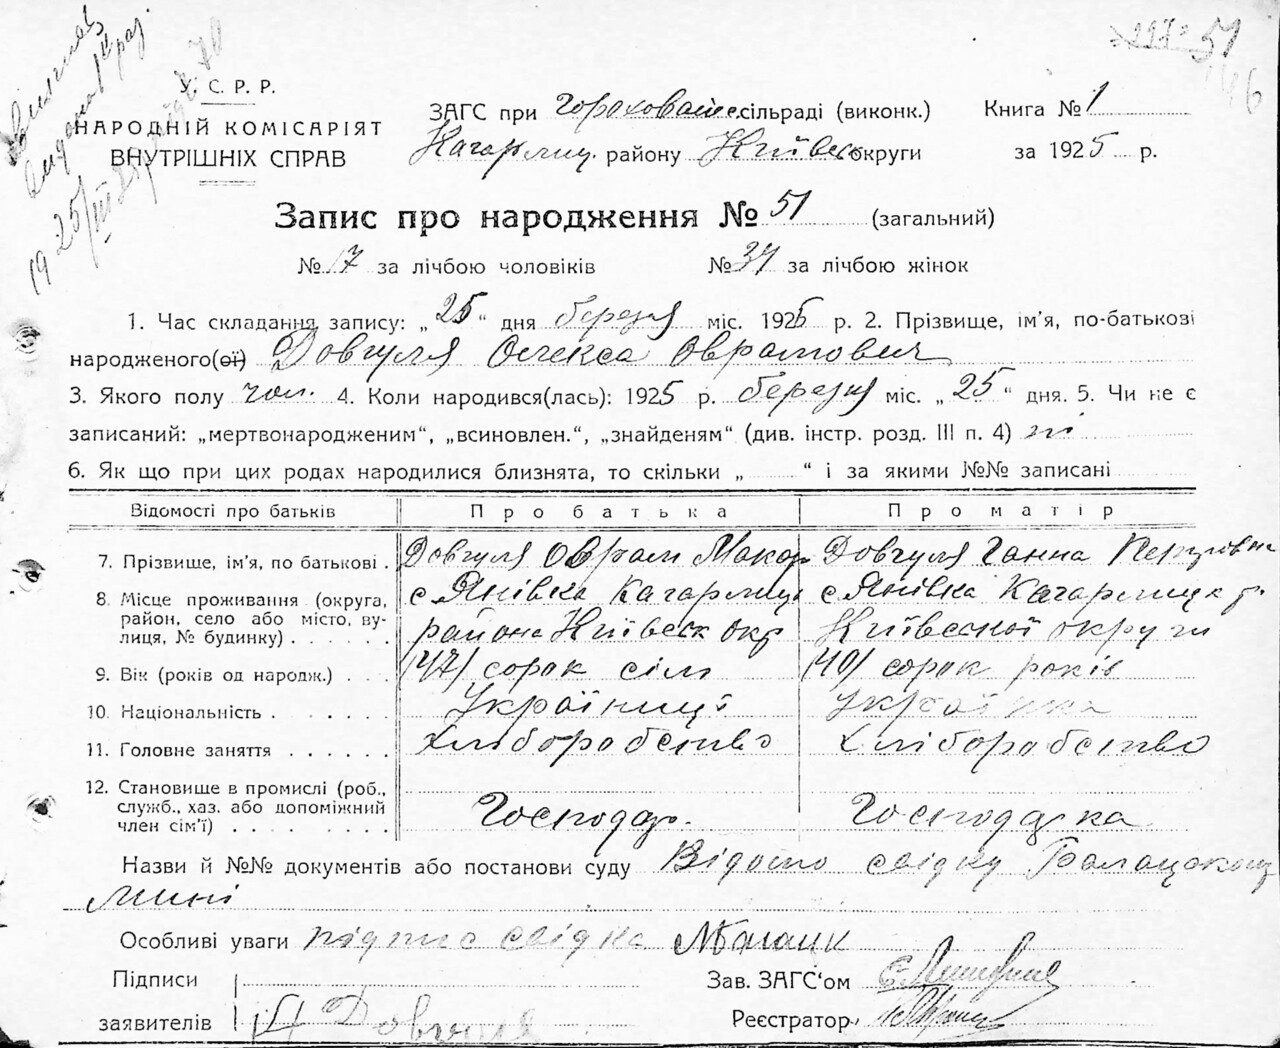 51
У. С. Р. Р.
НАРОДНІЙ КОМІСАРІЯТ
ВНУТРІШНІХ СПРАВ
ЗАГС при сільраді (виконк.) Книга № 1
Кагарлиц. району Київськ округи за 1925 р.
Запис про народження № 51 (загальний)
№ 17 за лічбою чоловіків № 34 за лічбою жінок
1. Час складання запису: „25“ дня березня міс. 1925 р. 2. Прізвище, ім'я, по-батькові
народженого(ої) Довгуля Олекса Оврамович
3. Якого полу чол. 4. Коли народився(лась): 1925 р. березня міс. „25“ дня. 5. Чи не є
записаний: „мертвонародженим“, „всиновлен.“, „знайденям“ (див. інстр. розд. III п. 4) ні
6. Як що при цих родах народилися близнята, то скільки „ “ і за якими №№ записані
Відомості про батьків Про батька Про матір
7. Прізвище, ім'я, по батькові . Довгуля Оврам Макар Довгуля Ганна Петрівна
8. Місце проживання (округа, район, село або місто, вулиця, № будинку) с Янівка Кагарлицк с Янівка Кагарлицк р.
района Київськ окр Київської округи
9. Вік (років од народж.) (47) сорок сім (40) сорок років
10. Національність Українці Українка
11. Головне заняття хліборобство хліборобство
12. Становище в промислі (роб., служб., хаз. або допоміжний член сім'ї) Господар. Господарка
Назви й №№ документів або постанови суду Відомо свідку
Особливі уваги підпис свідка
Підписи Зав. ЗАГС'ом
заявителів Довгуля Реєстратор